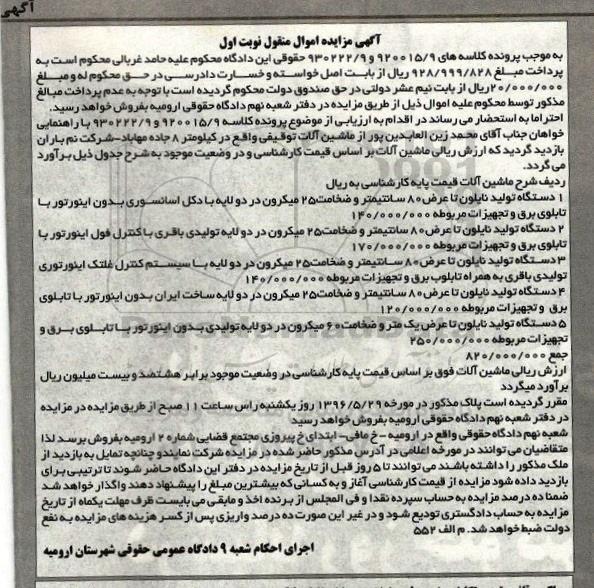 آگهی
آگهی مزایده اموال منقول نوبت اول
به موجب پرونده کلاسه های ۹۲۰۰۱۵/۹ و ۹۳۰۲۲۲/۹ حقوقی این دادگاه محکوم علیه حامد غربالی محکوم است به
پرداخت مبلغ ۹۲۸/۹۹۹/۸۲۸ ریال از بابت اصل خواسته و خسارت دادرسی در حق محکوم له و مبلغ
۲۰/۰۰۰/۰۰۰ ریال از بابت نیم عشر دولتی در حق صندوق دولت محکوم گردیده است با توجه به عدم پرداخت مبالغ
مذکور توسط محکوم علیه اموال ذیل از طریق مزایده در دفتر شعبه نهم دادگاه حقوقی ارومیه بفروش خواهد رسید.
احتراما به استحضار می رساند در اقدام به ارزیابی از موضوع پرونده کلاسه ۹۲۰۰۱۵/۹ و ۹۳۰۲۲۲/۹ با راهنمایی
خواهان جناب آقای محمد زین العابدین پور از ماشین آلات توقیفی واقع در کیلومتر ۸ جاده مهاباد-شرکت نم باران
بازدید گردید که ارزش ریالی ماشین آلات بر اساس قیمت کارشناسی و در وضعیت موجود به شرح جدول ذیل برآورد
می گردد.
ردیف شرح ماشین آلات قیمت پایه کارشناسی به ریال
۱ دستگاه تولید نایلون تا عرض ۸۰ سانتیمتر و ضخامت ۲۵ میکرون در دو لایه با دکل آسانسوری بدون اینورتور با
تابلوی برق و تجهیزات مربوطه ۱۴۰/۰۰۰/۰۰۰
۲ دستگاه تولید نایلون تا عرض ۸۰ سانتیمتر و ضخامت ۲۵ میکرون در دو لایه تولیدی باقری با کنترل فول اینورتور با
تابلوی برق و تجهیزات مربوطه ۱۷۰/۰۰۰/۰۰۰
۳ دستگاه تولید نایلون تا عرض ۸۰ سانتیمتر و ضخامت ۲۵ میکرون در دو لایه با سیستم کنترل غلتک اینورتوری
تولیدی باقری به همراه تابلوب برق و تجهیزات مربوطه ۱۴۰/۰۰۰/۰۰۰
۴ دستگاه تولید نایلون تا عرض ۸۰ سانتیمتر و ضخامت ۲۵ میکرون در دو لایه ساخت ایران بدون اینورتور با تابلوی
برق و تجهیزات مربوطه ۱۲۰/۰۰۰/۰۰۰
۵ دستگاه تولید نایلون تا عرض یک متر و ضخامت ۶۰ میکرون در دو لایه تولیدی بدون اینورتور با تابلوی برق و
تجهیزات مربوطه ۲۵۰/۰۰۰/۰۰۰
جمع ۸۲۰/۰۰۰/۰۰۰
ارزش ریالی ماشین آلات فوق بر اساس قیمت پایه کارشناسی در وضعیت موجود برابر هشتصد و بیست میلیون ریال
برآورد میگردد
مقرر گردیده است پلاک مذکور در مورخه ۱۳۹۶/۵/۲۹ روز یکشنبه راس ساعت ۱۱ صبح از طریق مزایده در مزایده
در دفتر شعبه نهم دادگاه حقوقی ارومیه بفروش خواهد رسید
شعبه نهم دادگاه حقوقی واقع در ارومیه - خ مافی- ابتدای خ پیروزی مجتمع قضایی شماره ۲ ارومیه بفروش برسد لذا
متقاضیان می توانند در مورخه اعلامی در آدرس مذکور حاضر شده در مزایده شرکت نمایند و چنانچه تمایل به بازدید از
ملک مذکور را داشته باشند می توانند تا ۵ روز قبل از تاریخ مزایده در دفتر این دادگاه حاضر شوند تا ترتیبی برای
بازدید داده شود مزایده از قیمت کارشناسی آغاز و به کسانی که بیشترین مبلغ را پیشنهاد دهند واگذار خواهد شد
ضمنا ده درصد مزایده به حساب سپرده نقدا و فی المجلس از برنده اخذ و مابقی می بایست ظرف مهلت یکماه از تاریخ
مزایده به حساب دادگستری تودیع شود و در غیر این صورت ده درصد واریزی پس از کسر هزینه های مزایده به نفع
دولت ضبط خواهد شد. م الف ۵۵۲
اجرای احکام شعبه ۹ دادگاه عمومی حقوقی شهرستان ارومیه